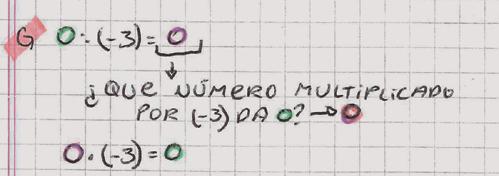 G 0:(-3)=0
¿QUE NÚMERO MULTIPLICADO
POR (-3) DA 0? → 0
0·(-3)=0